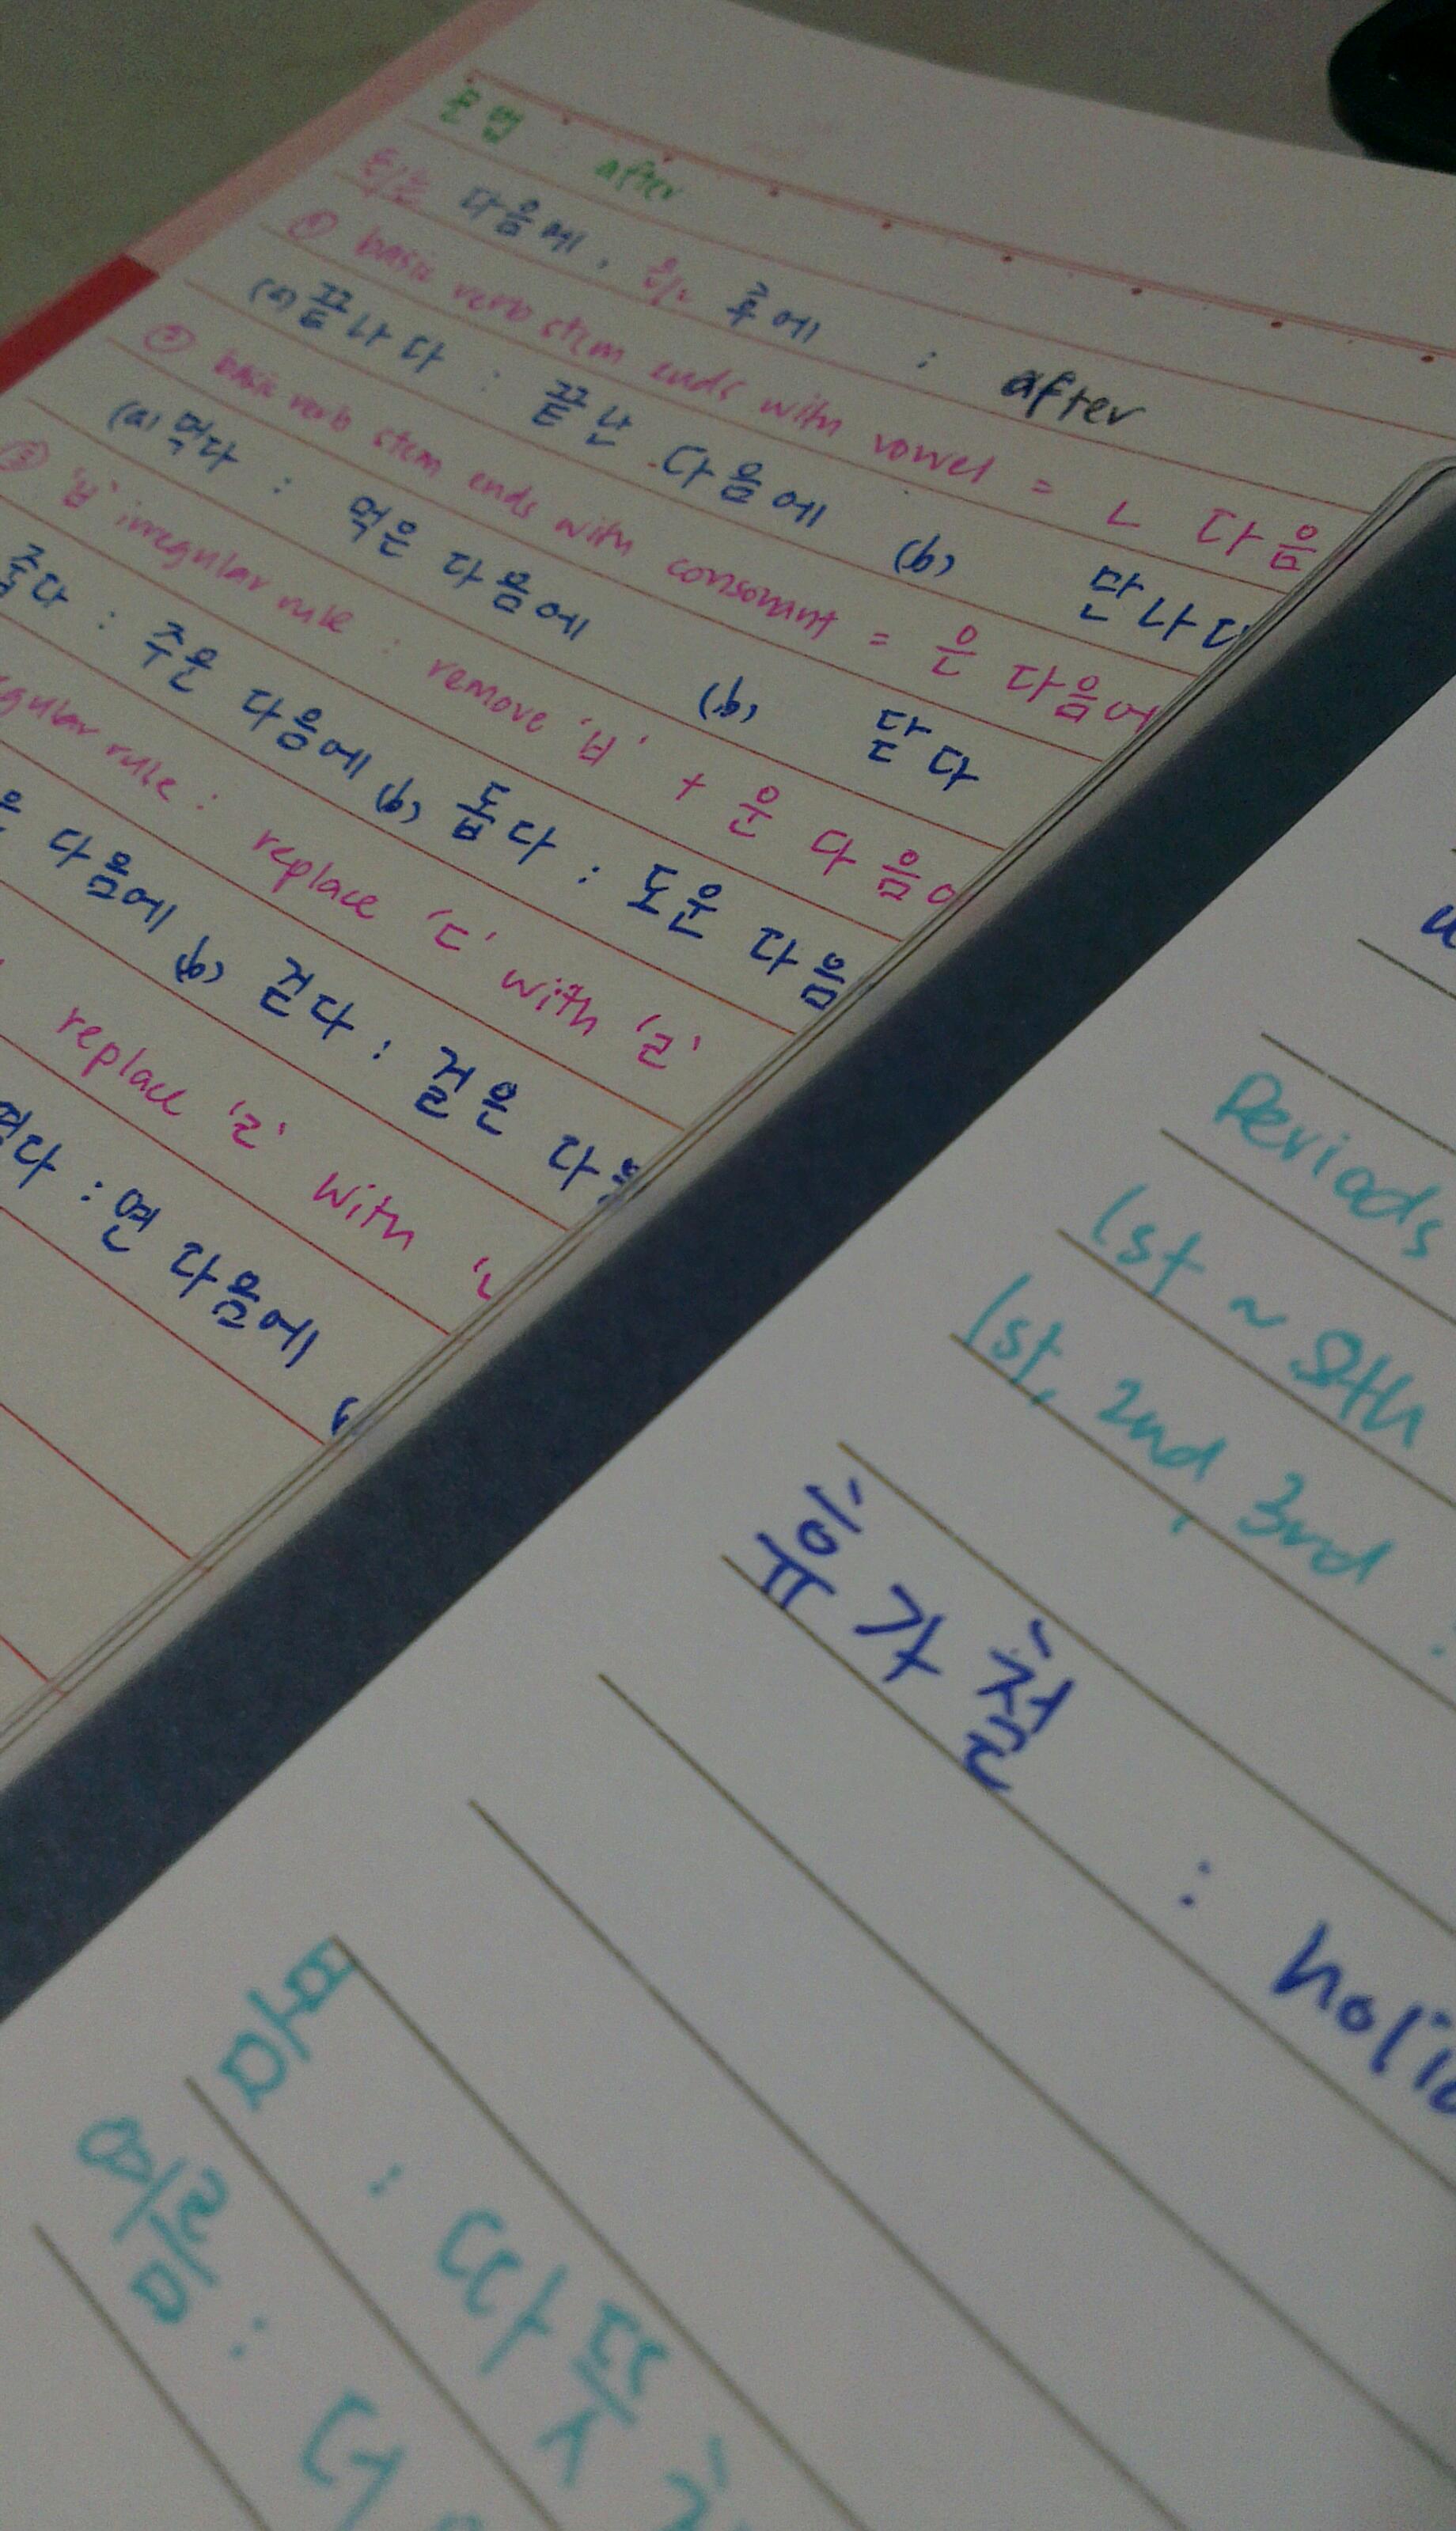 문법 after
은/는 다음에, 은/ㄴ 후에 : after
① basic verb stem ends with vowel = ㄴ 다음
(a) 끝나다 : 끝난 다음에 (b) 만나다
② basic verb stem ends with consonant = 은 다음에
(a) 먹다 : 먹은 다음에 (b) 닫다
③ 'ㅂ' irregular rule : remove 'ㅂ' + 운 다음
줍다 : 주운 다음에 (b) 돕다 : 도운 다음
rule : replace 'ㄷ' with 'ㄹ'
다음에 (b) 걷다 : 걸은 다음
replace 'ㄹ' with 'ㄴ
: 연 다음에
Periods
1st ~ 8th
1st, 2nd, 3rd
휴가철 :
봄 :
여름 :